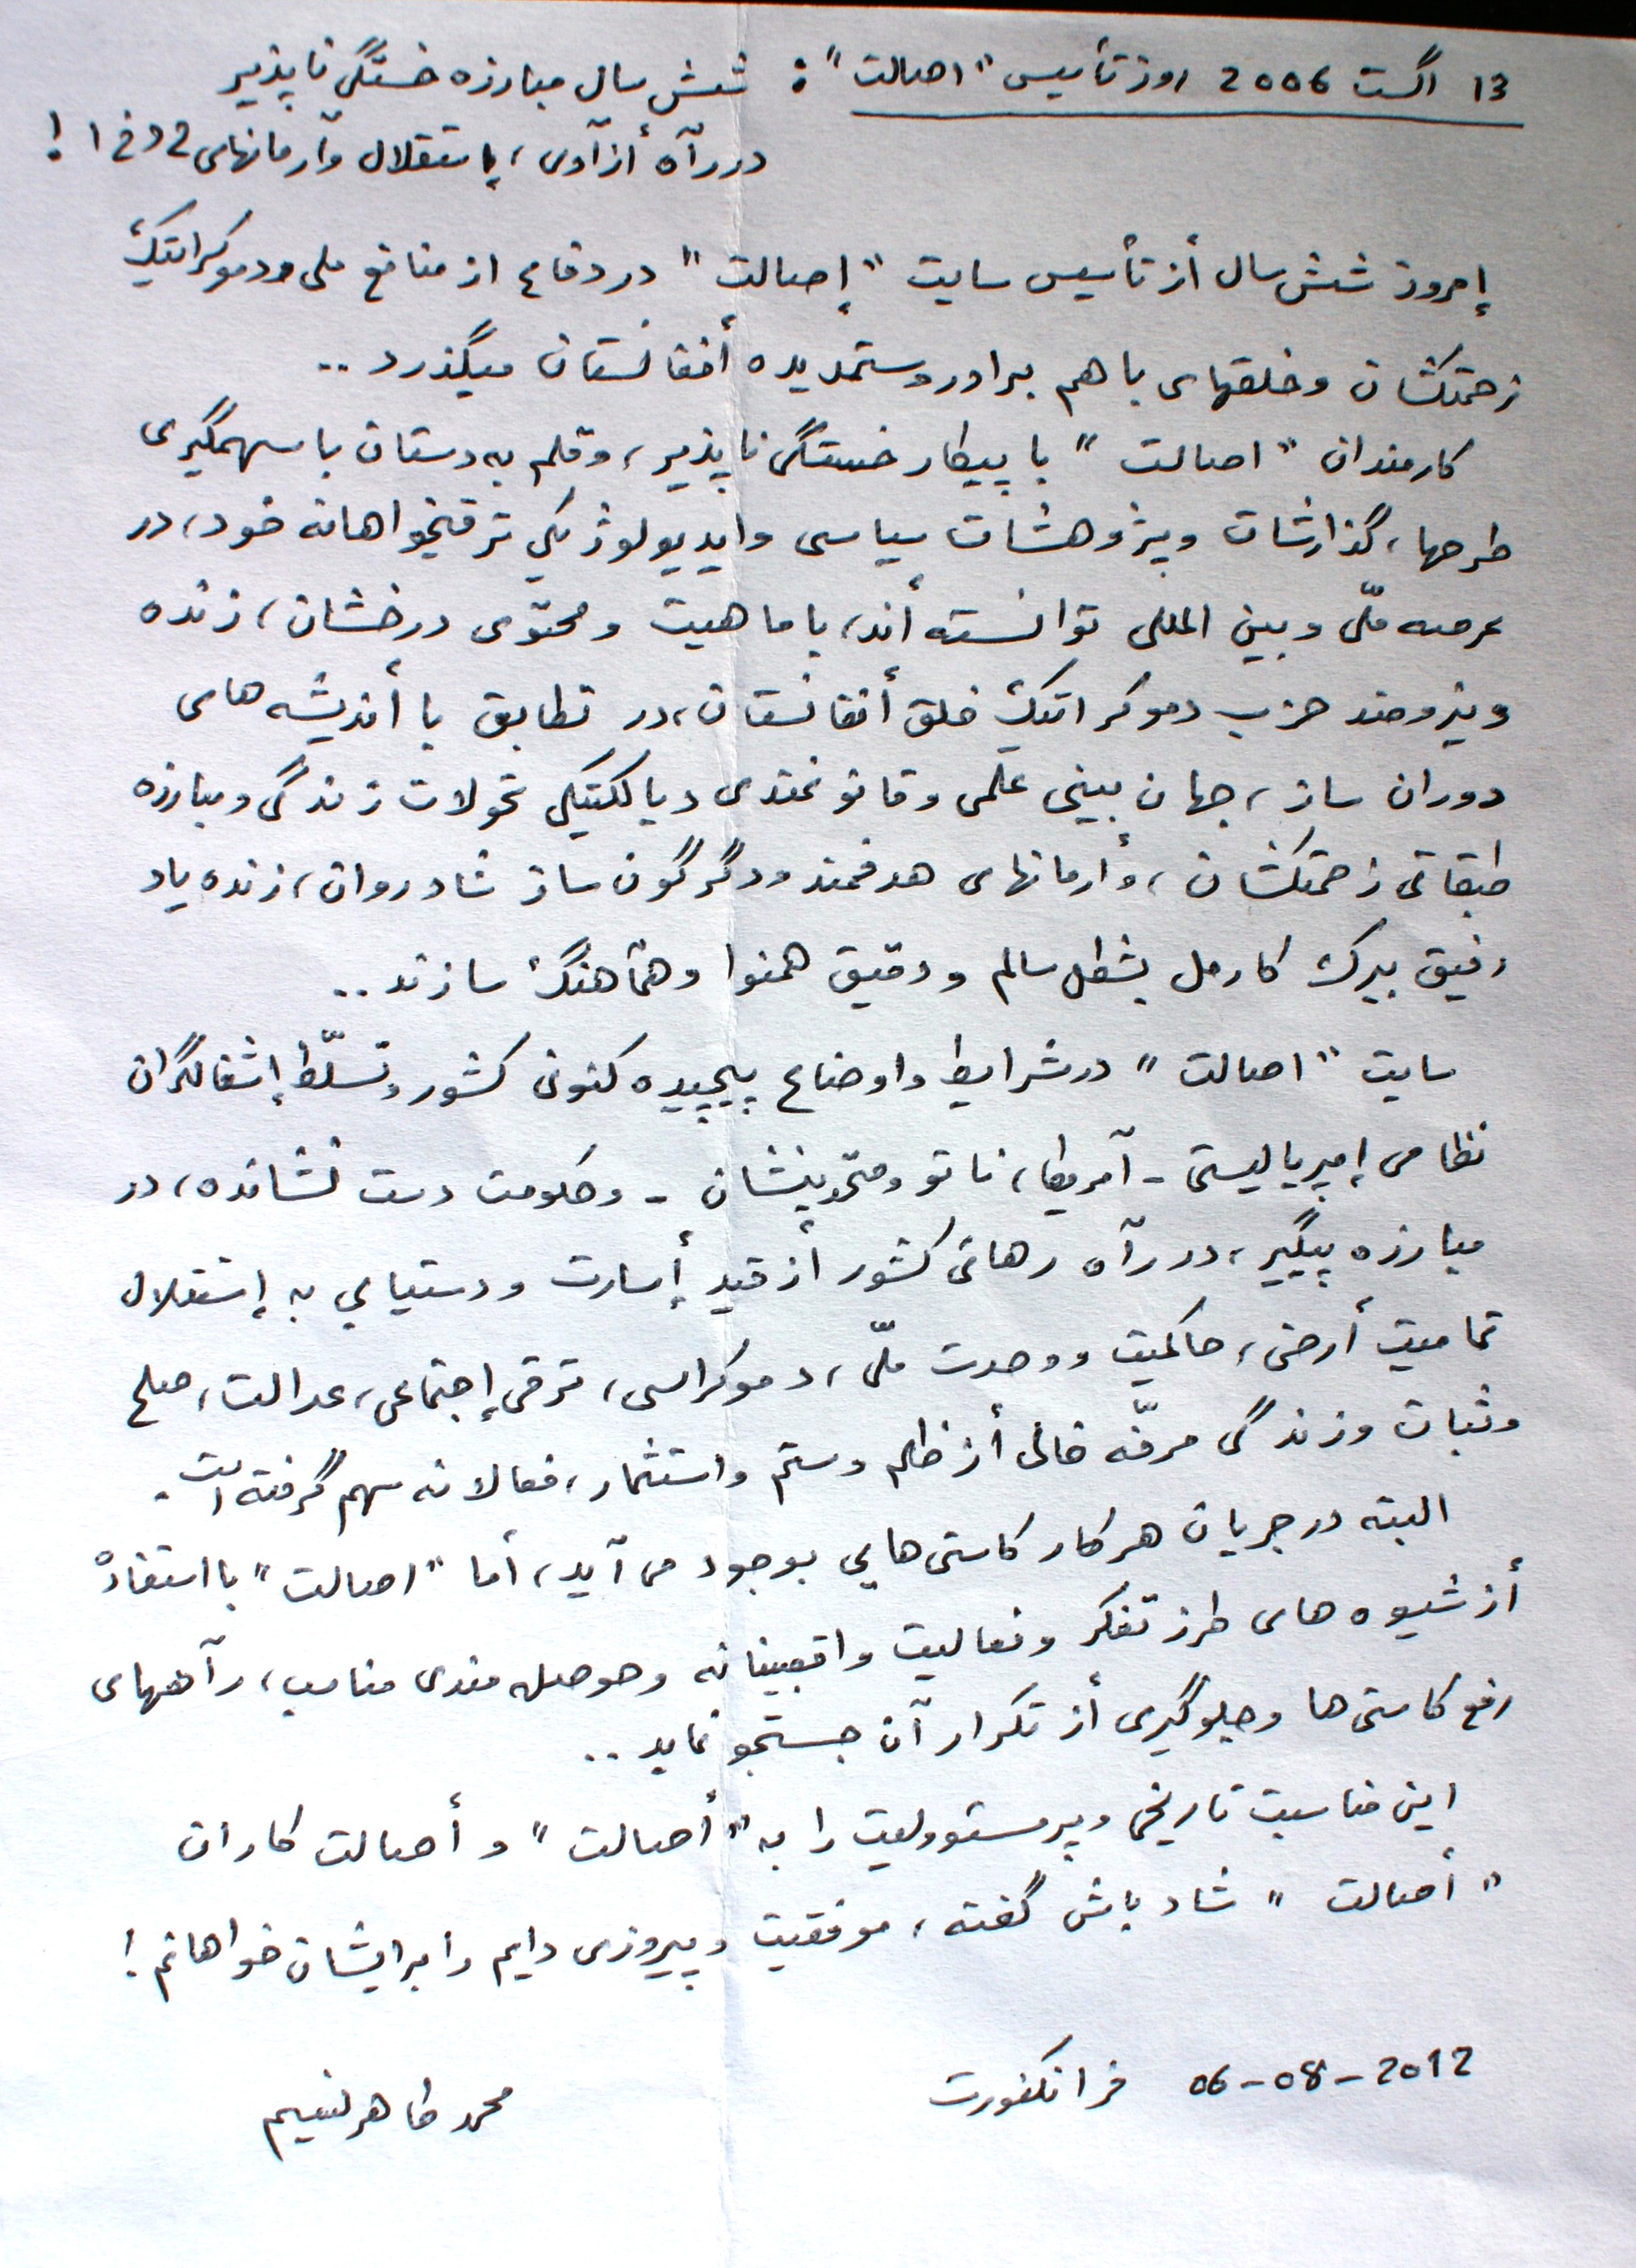 13 اگست 2006 روز تأسیس "اصالت": شش سال مبارزه خستگی ناپذیر
در رآه أزآدی، إستقلال وآرمانهای ح د خ ا !
إمروز شش سال أز تأسیس سایت "إصالت" در دفاع از منافع ملی ودموکراتیک
زحمتکشان وخلقهای باهم برادر وستمدیده أفغانستان میگذرد ..
کارمندان "اصالت" با پیکار خستگی ناپذیر، وقلم به دستان با سهمگیری
طرحها، گذارشات وپژوهشات سیاسی وایدیولوژیکی ترقیخواهانه خود، در
عرصه ملّی وبین المللی توانسته أند، با ماهیت ومحتوی درخشان، زنده
ونیرومند حزب دموکراتیک خلق أفغانستان، در تطابق با أندیشه های
دوران ساز، جهان بینی علمی وقانونمندی دیالکتیکی تحولات زندگی ومبارزه
طبقاتی زحمتکشان، وأرمانهای هدفمند ودگرگون ساز شادروان، زنده یاد
رفیق ببرک کارمل بشکل سالم ودقیق همنوا وهمآهنگ سازند ..
سایت "اصالت" در شرایط واوضاع پیچیده کنونی کشور وتسلّط إشغالگران
نظامی إمپریالیستی - آمریکا، ناتو ومتحدینشان - وحکومت دست نشانده، در
مبارزه پیگیر، در رآه رهائی کشور أز قید إسارت ودستیابی به إستقلال
تمامیت أرضی، حاکمیت ووحدت ملّی، دموکراسی، ترقی إجتماعی، عدالت، صلح
وثبات وزندگی مرفّه خالی أز ظلم وستم واستثمار، فعالانه سهم گرفته است.
البته در جریان هر کار کاستی هایی بوجود می آید، أما "اصالت" با استفادهٔ
أز شیوه های طرز تفکر وفعالیت واقعبینانه وحوصله مندی مناسب، رآههای
رفع کاستی ها وجلوگیری أز تکرار آن جستجو نماید ..
این مناسبت تاریخی وپر مسئوولیت را به "أصالت" و أصالت کاران
"أصالت" شادباش گفته، موفقیت وپیروزی دایم را برایشان خواهانم !
06-08-2012 فرانکفورت
محمد طاهر نسیم